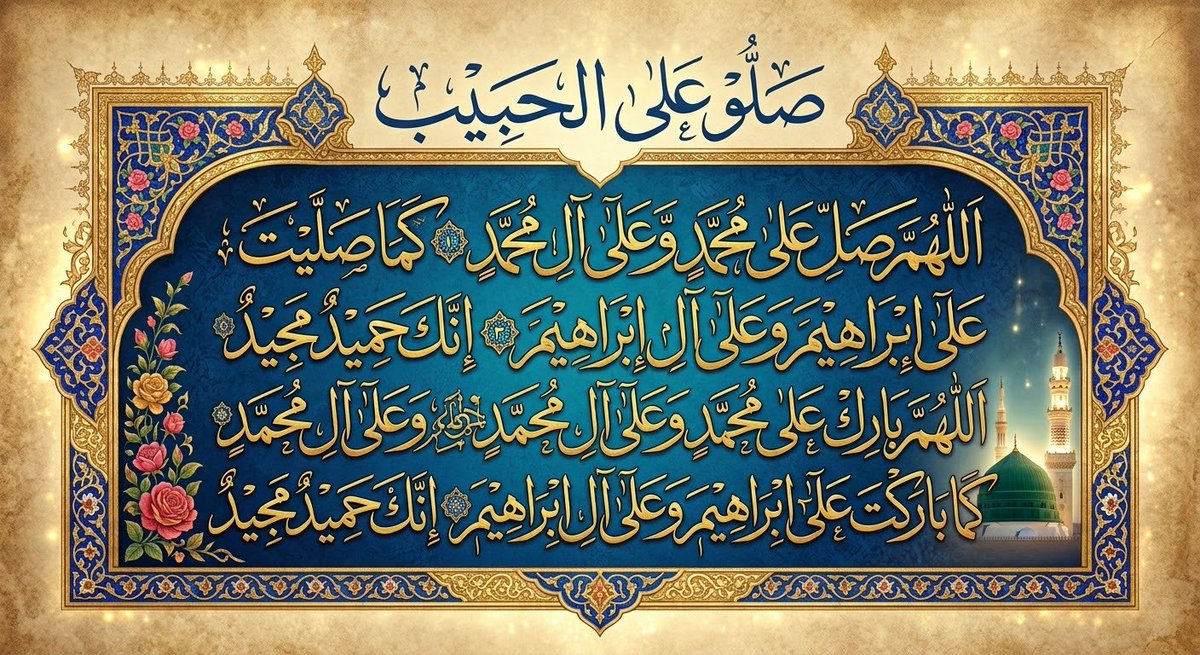 صَلُّوْ عَلىٰ الحَبِيْب
اَللّٰهُمَّ صَلِّ عَلىٰ مُحَمَّدٍ وَّعَلىٰ آلِ مُحَمَّدٍ كَمَا صَلَّيْتَ
عَلىٰٓ اِبْرَاهِيْمَ وَعَلىٰٓ آلِ اِبْرَاهِيْمَ اِنَّكَ حَمِيْدٌ مَّجِيْدٌ
اَللّٰهُمَّ بَارِكْ عَلىٰ مُحَمَّدٍ وَعَلىٰٓ آلِ مُحَمَّدٍ وَعَلىٰٓ آلِ مُحَمَّدٍ
كَمَا بَارَكْتَ عَلىٰٓ اِبْرَاهِيْمَ وَعَلىٰٓ آلِ اِبْرَاهِيْمَ اِنَّكَ حَمِيْدٌ مَجِيْدٌ